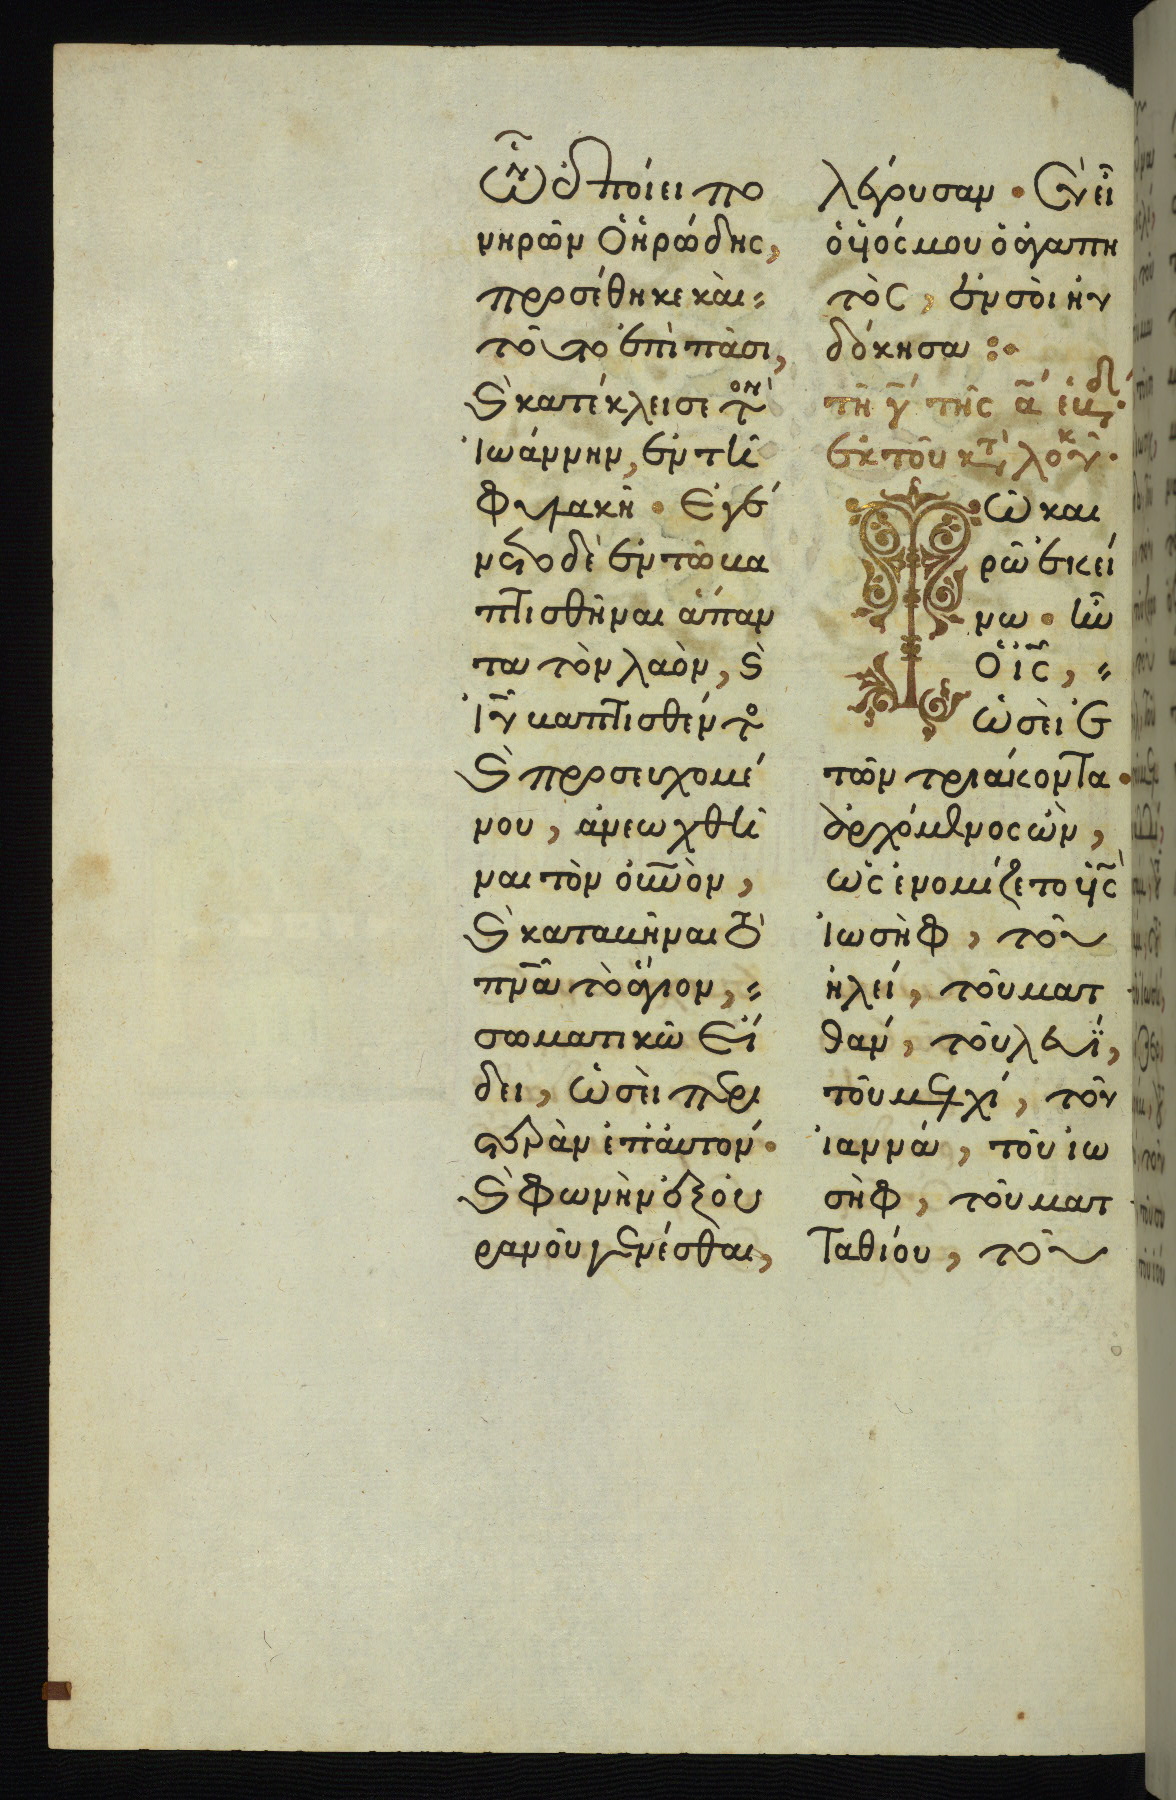 ὧν ἐποίει πο
νηρῶν ὁ ἡρώδης,
προσέθηκε καὶ
τοῦτο ἐπὶ πᾶσι,
ϗ κατέκλεισε τὸν
ἰωάννην, ἐν τῇ
φυλακῇ. ἐγέ
νετο δὲ ἐν τῶ βα
πτισθῆναι ἅπαν
τα τὸν λαὸν, ϗ
ἰυ βαπτισθέντος
ϗ προσευχομέ
νου, ἀνεωχθῆ
ναι τὸν οὐνὸν,
ϗ καταβῆναι τὸ
πνᾶ τὸ ἅγιον,
σωματικῶ εἴ
δει, ὡσεὶ περι
στερὰν ἐπ' αὐτόν.
ϗ φωνὴν ἐξ οὐ
ρανοῦ γενέσθαι,
λέγουσαν. σὺ εἶ
ὁ υἱός μου ὁ ἀγαπη
τὸς, ἐν σοὶ ηυ
δόκησα :·
τῆ γ τῆς α ἑβδ.
ἐκ τοῦ κτ λουκ.
Τῶ και
ρῶ ἐκεί
νω. ἦν
ὁ ἰς,
ὡσεὶ ἐ
τῶν τριάκοντα.
ἀρχόμενος ὢν,
ὡς ἐνομίζετο υἱς
ἰωσὴφ, τοῦ
ἡλεί, τοῦ ματ
θάν, τοῦ λευΐ,
τοῦ μελχί, τοῦ
ἰαννά, τοῦ ἰω
σὴφ, τοῦ ματ
ταθίου, τοῦ